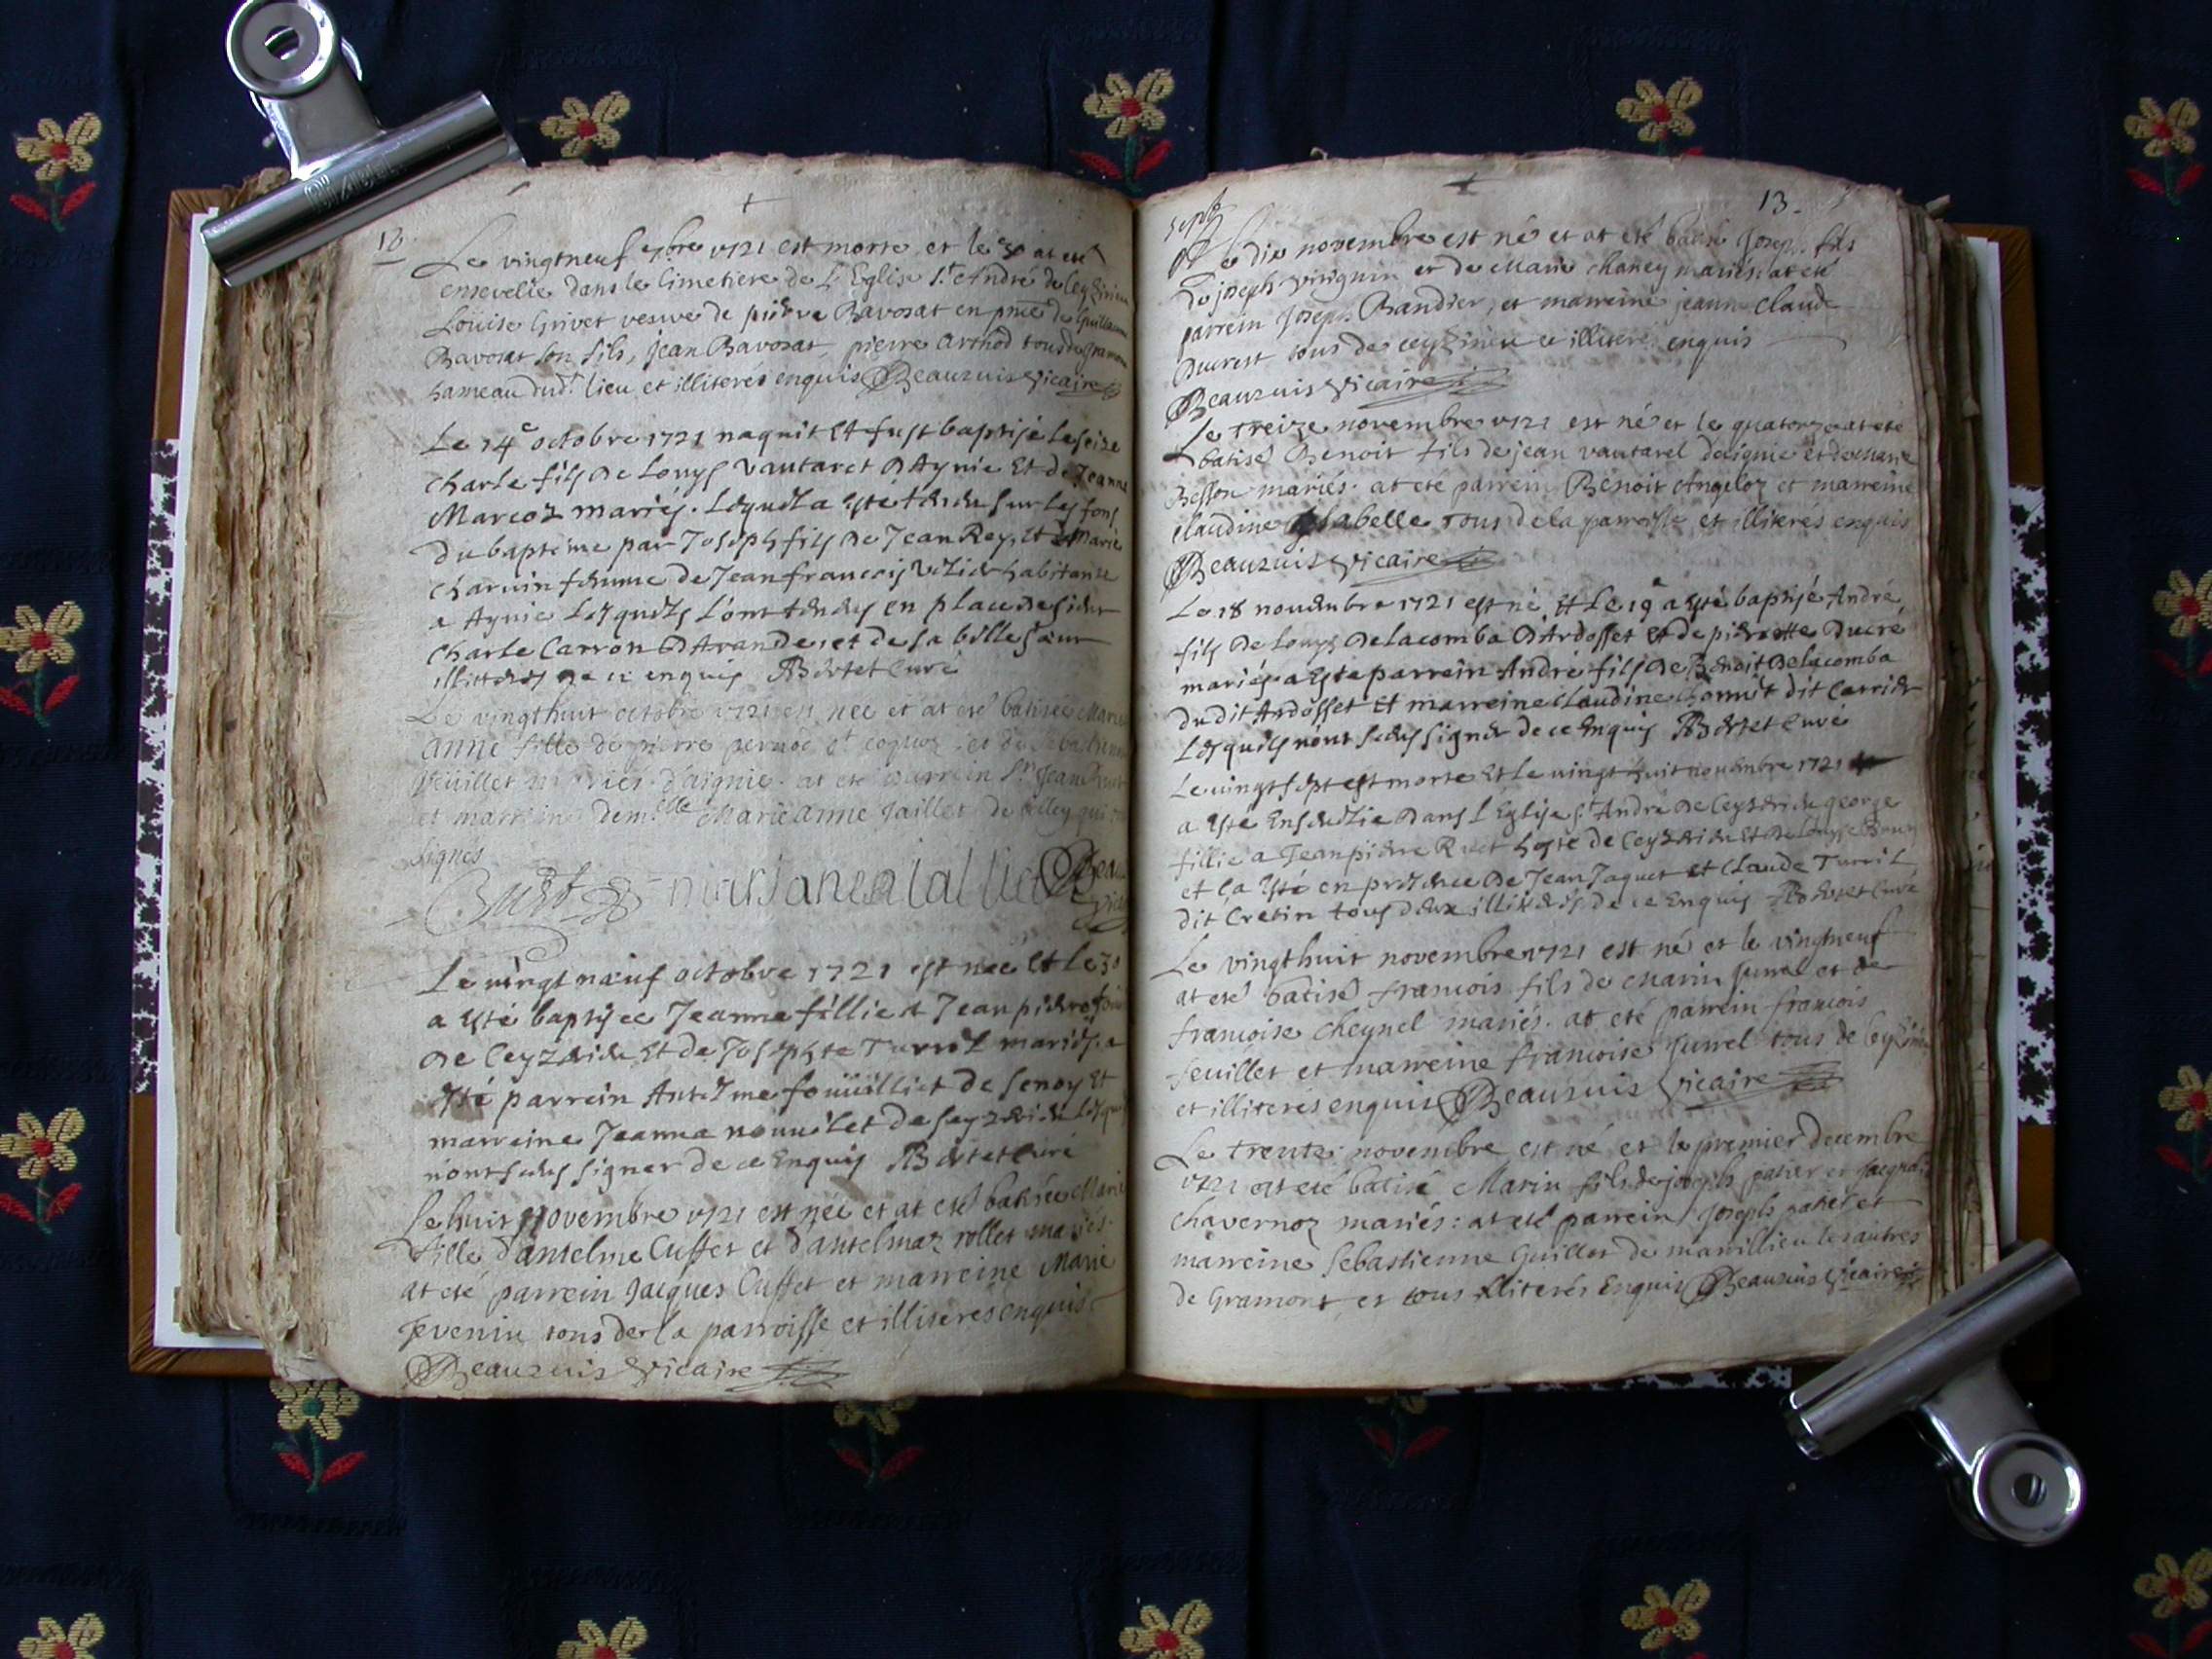 13
Le vingtneuf 7bre 1721 est morte et le 30 at eté
ensevelie dans le Cimetiere de L'Eglise St. André de
Louise Grivet vesve de pierre Bavosat en pnce de
Bavosat son fils, Jean Bavosat, pierre arthod tous de
hameau dudt. lieu et illiterés enquis Beauzuis Vicaire
Le 14e octobre 1721 naquit Et fust baptisé le seize
Charle fils De Louys Vautaret D'Aynie Et de Jeanne
Marcoz mariés. Lequel a esté tenu sur les fons
du baptéme par Joseph fils De Jean Rey, Et Marie
Charuin femme de Jean francois habitante
a Aynie Lesquels L'ont tenus en place De sieur
Charle Carron D'Arandes et de sa belle sœur
illitterés De ce enquis Bertet Curé
Le vingthuit octobre 1721 est née et at eté batisée Marie
anne fille de pierre et de Sebastienne
feüillet mariés d'aignie. at eté parrein Sr. Jean
et marreine demlle Marie anne Jaillet de qui
signés
marianealallia Beau
Le vingt nœuf octobre 1721 est née Et Le 30
a esté baptisée Jeanne fillie A Jean pierre
De Ceyzerieu Et de Josephte Turrel mariés. a
esté parrein Anthelme foüilliet de Senoy Et
marreine Jeanne de Seyzerieu
n'ont sceus signer de ce Enquis Bertet Curé
Le huit Novembre 1721 est née et at eté batisée Marie
fille d'antelme Cuffet et d'antelmaz rollet mariés.
at eté parrein Jacques Cuffet et marreine Marie
Jevenin tous de la parroisse et illiteres enquis
Beauzuis Vicaire
13.
Le dix novembre est né et at eté batisé Joseph fils
de joseph et de Marie Chaney mariés at eté
parrein Joseph Bandier, et marreine jeanne Claude
Ducrest tous de ceyzirieu et illiterés enquis
Beauzuis Vicaire
Le Treize novembre 1721 est né et le quatorze at eté
batisé Benoit fils de jean vautarel daignie et de Marie
Besson mariés. at eté parrein Benoit Angeloz et marreine
claudine Labelle Tous de la parroisse et illiterés enquis
Beauzuis Vicaire
Le 18 nouembre 1721 est né Et Le 19e a esté baptisé André
fils De Louys Delacomba D'Ardosset Et de pierrette Ducré
mariés a esté parrein André fils De Benoit Delacomba
du dit Ardosset Et marreine Claudine dit Carrier
Lesquels n'ont sceus signer de ce Enquis Bertet Curé
Le uingt sept est morte Et Le uingt huit nouembre 1721
a esté Enseuelie Dans L'Église St. André De Ceyzerieu george
fillie a Jean pierre Ruet hoste de Ceyzerieu Et de Brun
et ça esté en presence De Jean Jaquet et Claude Turril
dit Cretin tous deux illiterés de ce Enquis Bertet Curé
Le vingthuit novembre 1721 est né et le vingtneuf
at eté batisé francois fils de Marin Jurrel et de
francoise Cheynel mariés. at eté parrein francois
feuillet et marreine francoise Jurrel tous de
et illiteres enquis Beauzuis Vicaire
Le trente novembre est né et le premier decembre
1721 at eté batisé Marin fils de joseph patier et
Chavernoz mariés: at eté parrein Joseph patier et
marreine Sebastienne Guillot de marillieu les autres
de Gramont et tous illiterés Enquis Beauzuis Vicaire